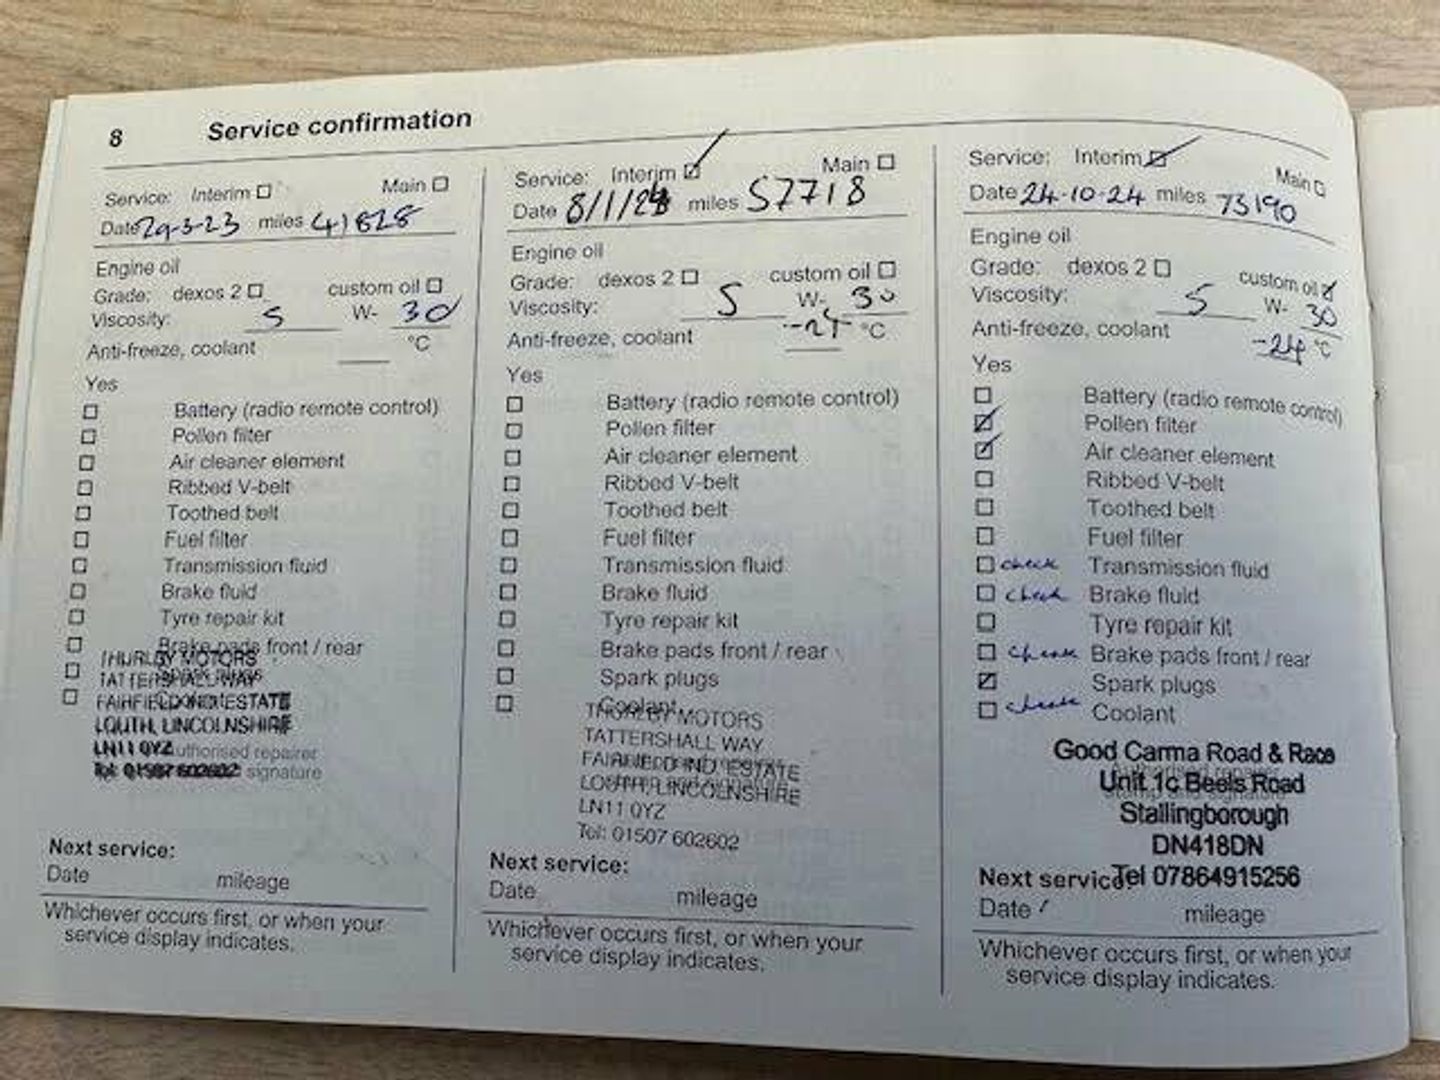 8 Service confirmation
Service: Interim Main
Date 29-3-23 miles 41828
Engine oil
Grade: dexos 2 custom oil
Viscosity: 5 W- 30
Anti-freeze, coolant °C
Yes
Battery (radio remote control)
Pollen filter
Air cleaner element
Ribbed V-belt
Toothed belt
Fuel filter
Transmission fluid
Brake fluid
Tyre repair kit
Brake pads front / rear
THURLBY MOTORS
TATTERSHALL WAY
FAIRFIELD IND ESTATE
LOUTH, LINCOLNSHIRE
LN11 0YZ
authorised repairer
Tel: 01507 602602
signature
Next service:
Date mileage
Whichever occurs first, or when your
service display indicates.
Service: Interim Main
Date 8/1/24 miles 57718
Engine oil
Grade: dexos 2 custom oil
Viscosity: 5 W- 30
Anti-freeze, coolant °C
Yes
Battery (radio remote control)
Pollen filter
Air cleaner element
Ribbed V-belt
Toothed belt
Fuel filter
Transmission fluid
Brake fluid
Tyre repair kit
Brake pads front / rear
Spark plugs
Coolant
THURLBY MOTORS
TATTERSHALL WAY
FAIRFIELD IND ESTATE
LOUTH, LINCOLNSHIRE
LN11 0YZ
Tel: 01507 602602
Next service:
Date mileage
Whichever occurs first, or when your
service display indicates.
Service: Interim Main
Date 24-10-24 miles 73190
Engine oil
Grade: dexos 2 custom oil
Viscosity: 5 W- 30
Anti-freeze, coolant -24 °C
Yes
Battery (radio remote control)
Pollen filter
Air cleaner element
Ribbed V-belt
Toothed belt
Fuel filter
check Transmission fluid
check Brake fluid
Tyre repair kit
check Brake pads front / rear
Spark plugs
check Coolant
Good Carma Road & Race
Unit 1c Beels Road
Stallingborough
DN418DN
Tel 07864915256
Next service
Date mileage
Whichever occurs first, or when your
service display indicates.